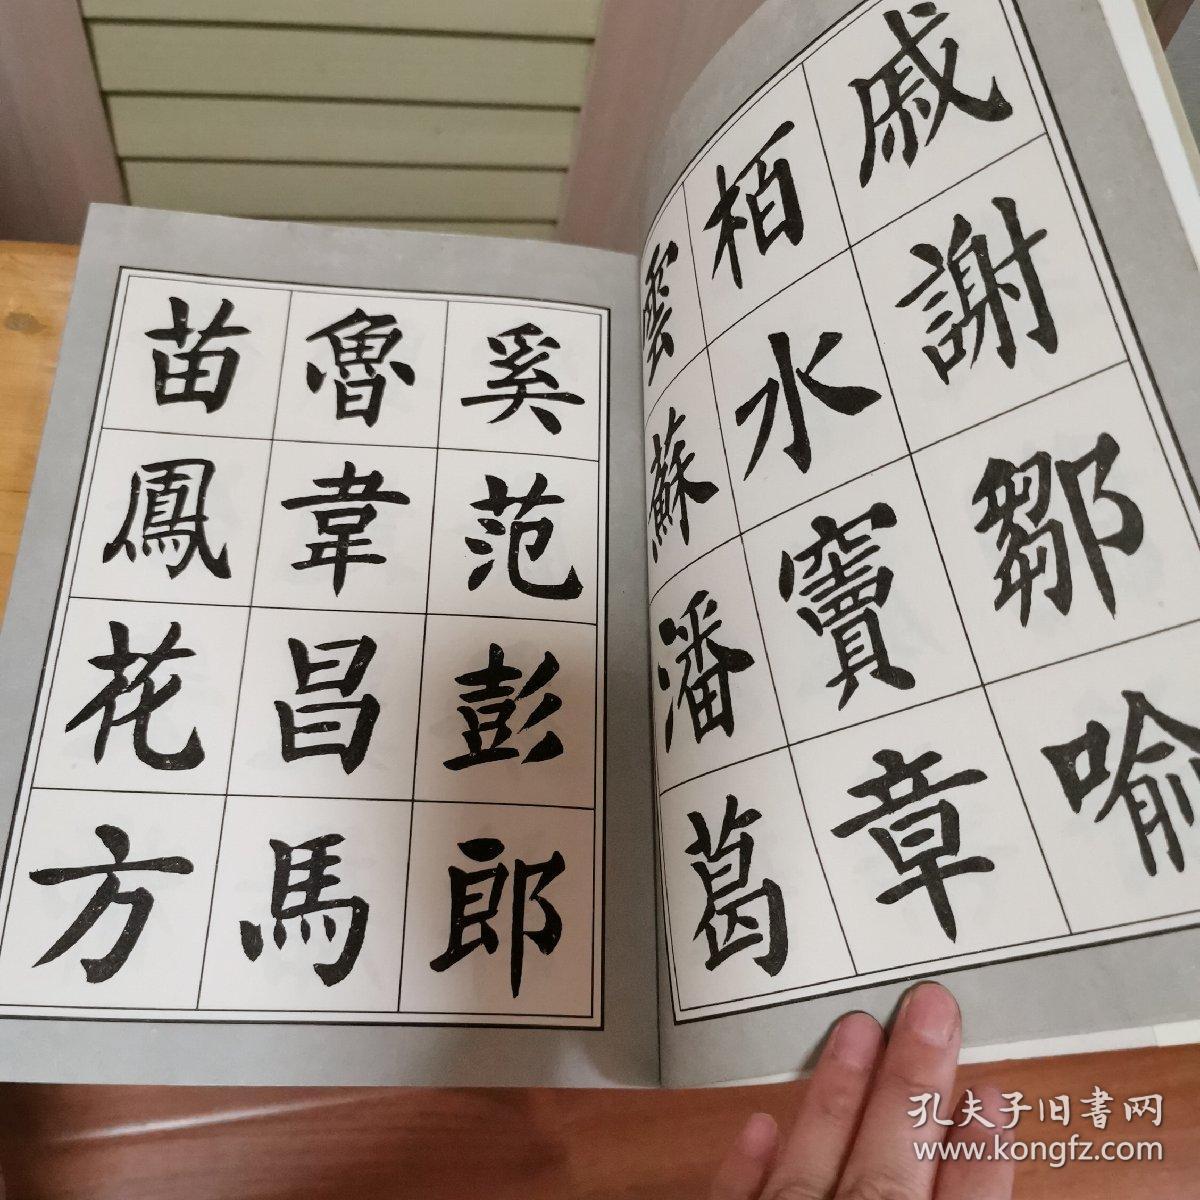 戚謝鄒喻
柏水竇章
雲蘇潘葛
奚范彭郎
魯韋昌馬
苗鳳花方
孔夫子旧書网
www.kongfz.com